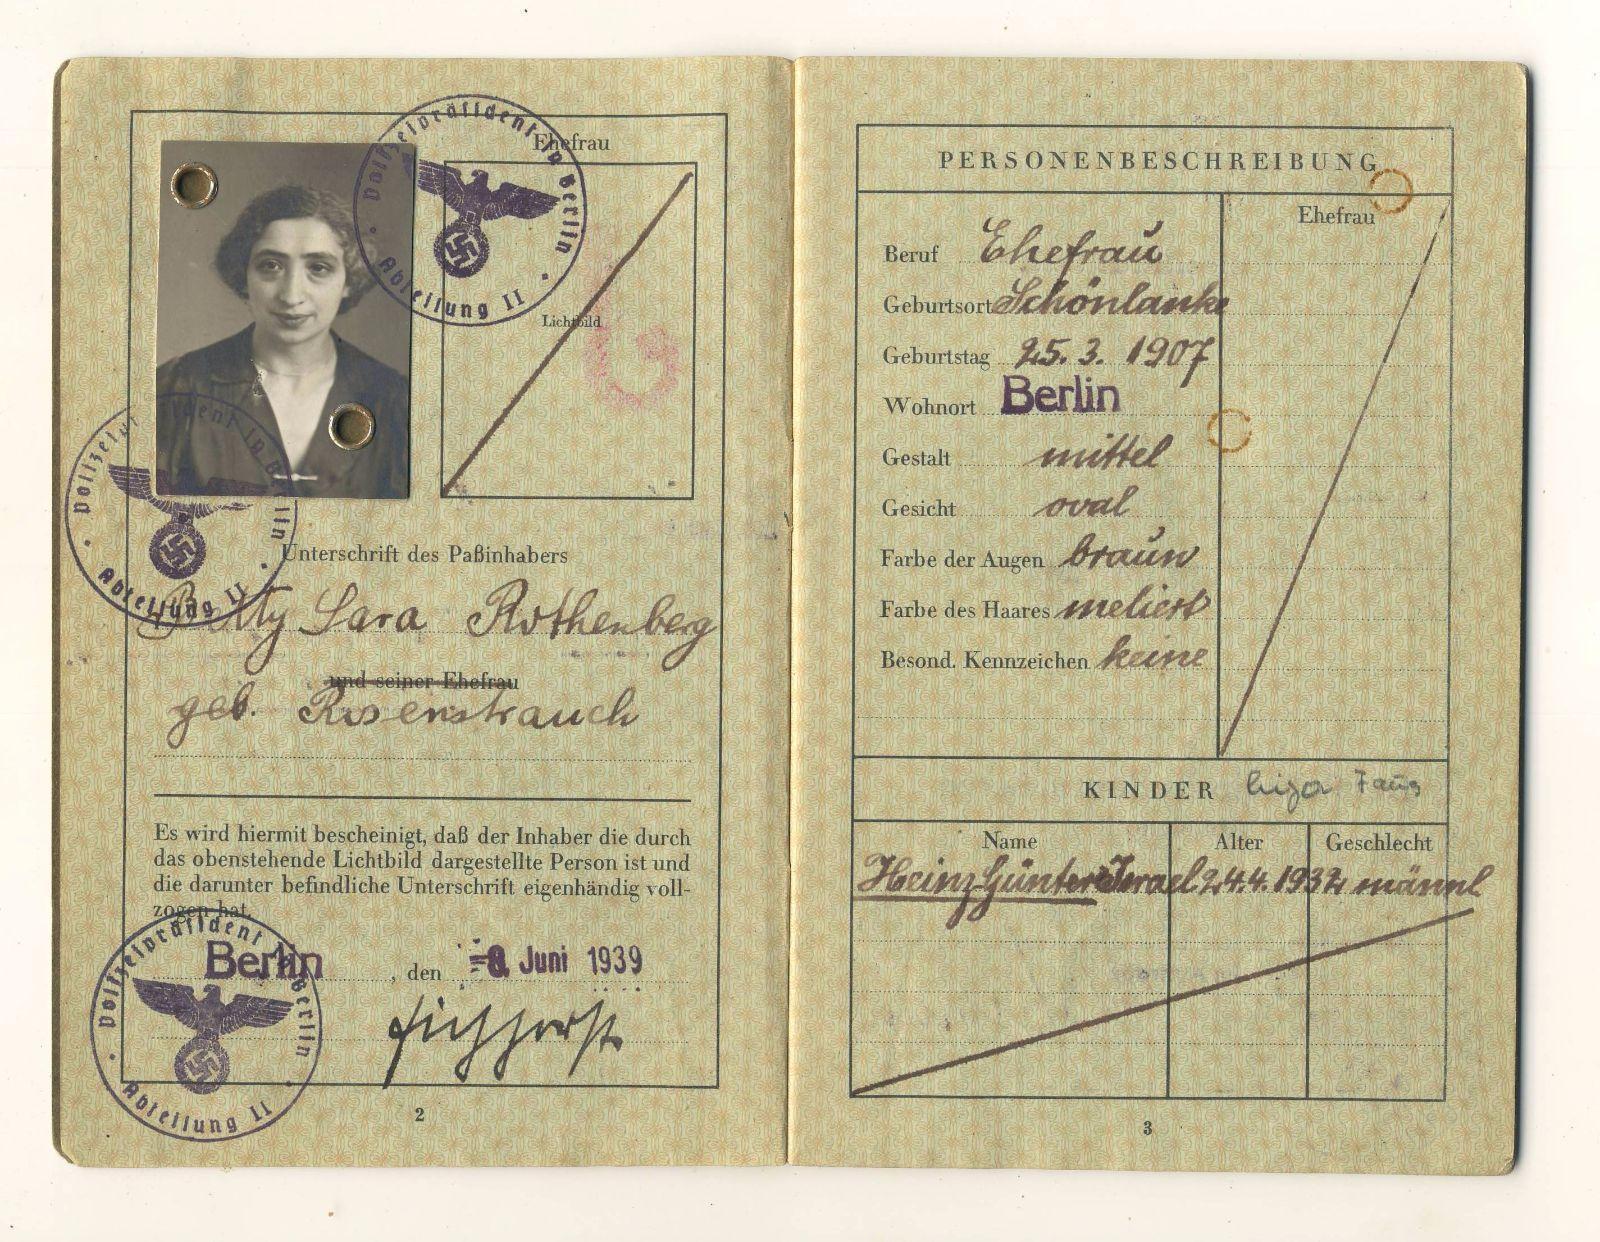 Ehefrau
Polizeipräsident in Berlin
Abteilung II
Lichtbild
Polizeipräsident in Berlin
Abteilung II
Unterschrift des Paßinhabers
Betty Sara Rothenberg
und seiner Ehefrau
geb. Rosenstrauch
Es wird hiermit bescheinigt, daß der Inhaber die durch
das obenstehende Lichtbild dargestellte Person ist und
die darunter befindliche Unterschrift eigenhändig voll-
zogen hat.
Berlin, den Juni 1939
Polizeipräsident in Berlin
Abteilung II
2
PERSONENBESCHREIBUNG
Ehefrau
Beruf Ehefrau
Geburtsort Schönlanke
Geburtstag 25. 3. 1907
Wohnort Berlin
Gestalt mittel
Gesicht oval
Farbe der Augen braun
Farbe des Haares meliert
Besond. Kennzeichen keine
KINDER
Name Alter Geschlecht
Heinz Günter Israel 24.4.1932 männl
3